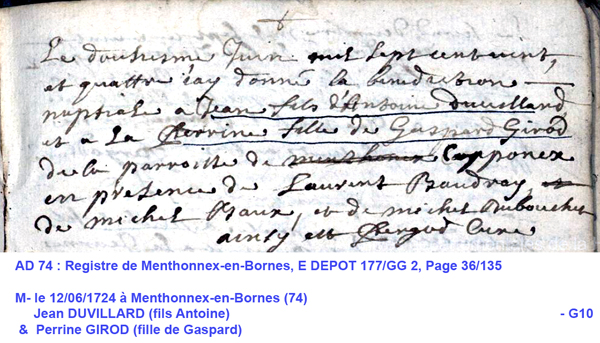 Le douzieme Juin mil sept cent vint,
et quattre j'ay donné la benediction
nuptiale a Jean fils d'Antoine Duvillard
et a la Perrine fille de Gaspard Girod
de la parroisse de Copponex
en presence de Laurent Baudray,
de michel Baux, et de michel Dubouchet
ainsy est Curé
AD 74 : Registre de Menthonnex-en-Bornes, E DEPOT 177/GG 2, Page 36/135
M- le 12/06/1724 à Menthonnex-en-Bornes (74)
Jean DUVILLARD (fils Antoine) - G10
& Perrine GIROD (fille de Gaspard)